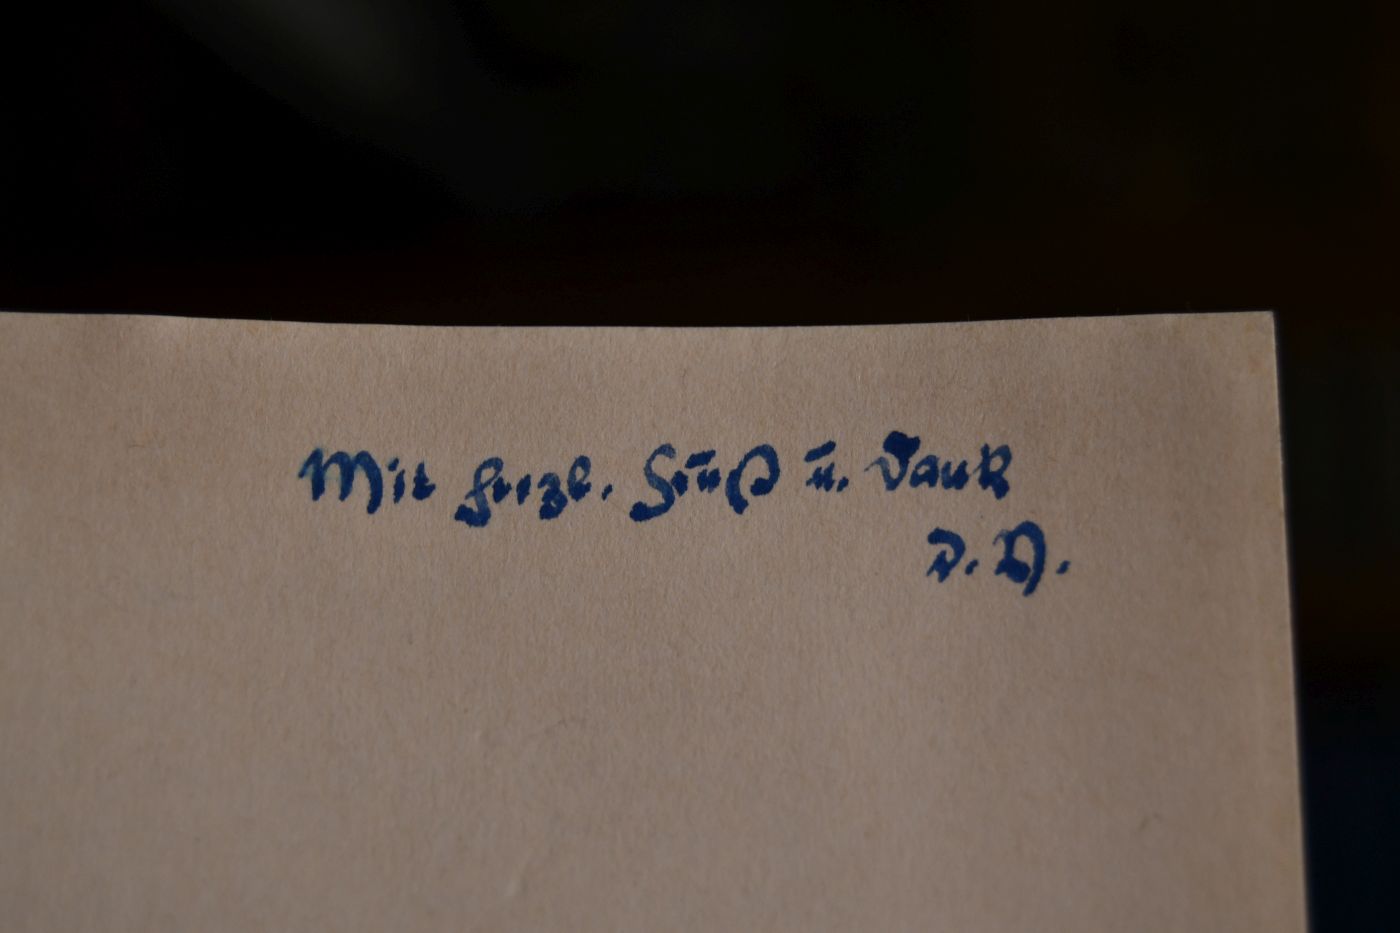 Mit herzl. Gruß u. Dank
D. V.